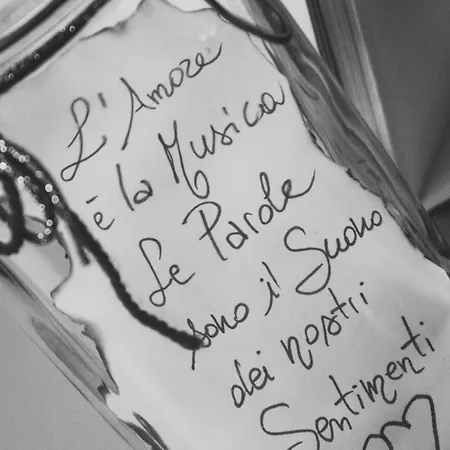 L'Amore
è la Musica
Le Parole
sono il Suono
dei nostri
Sentimenti